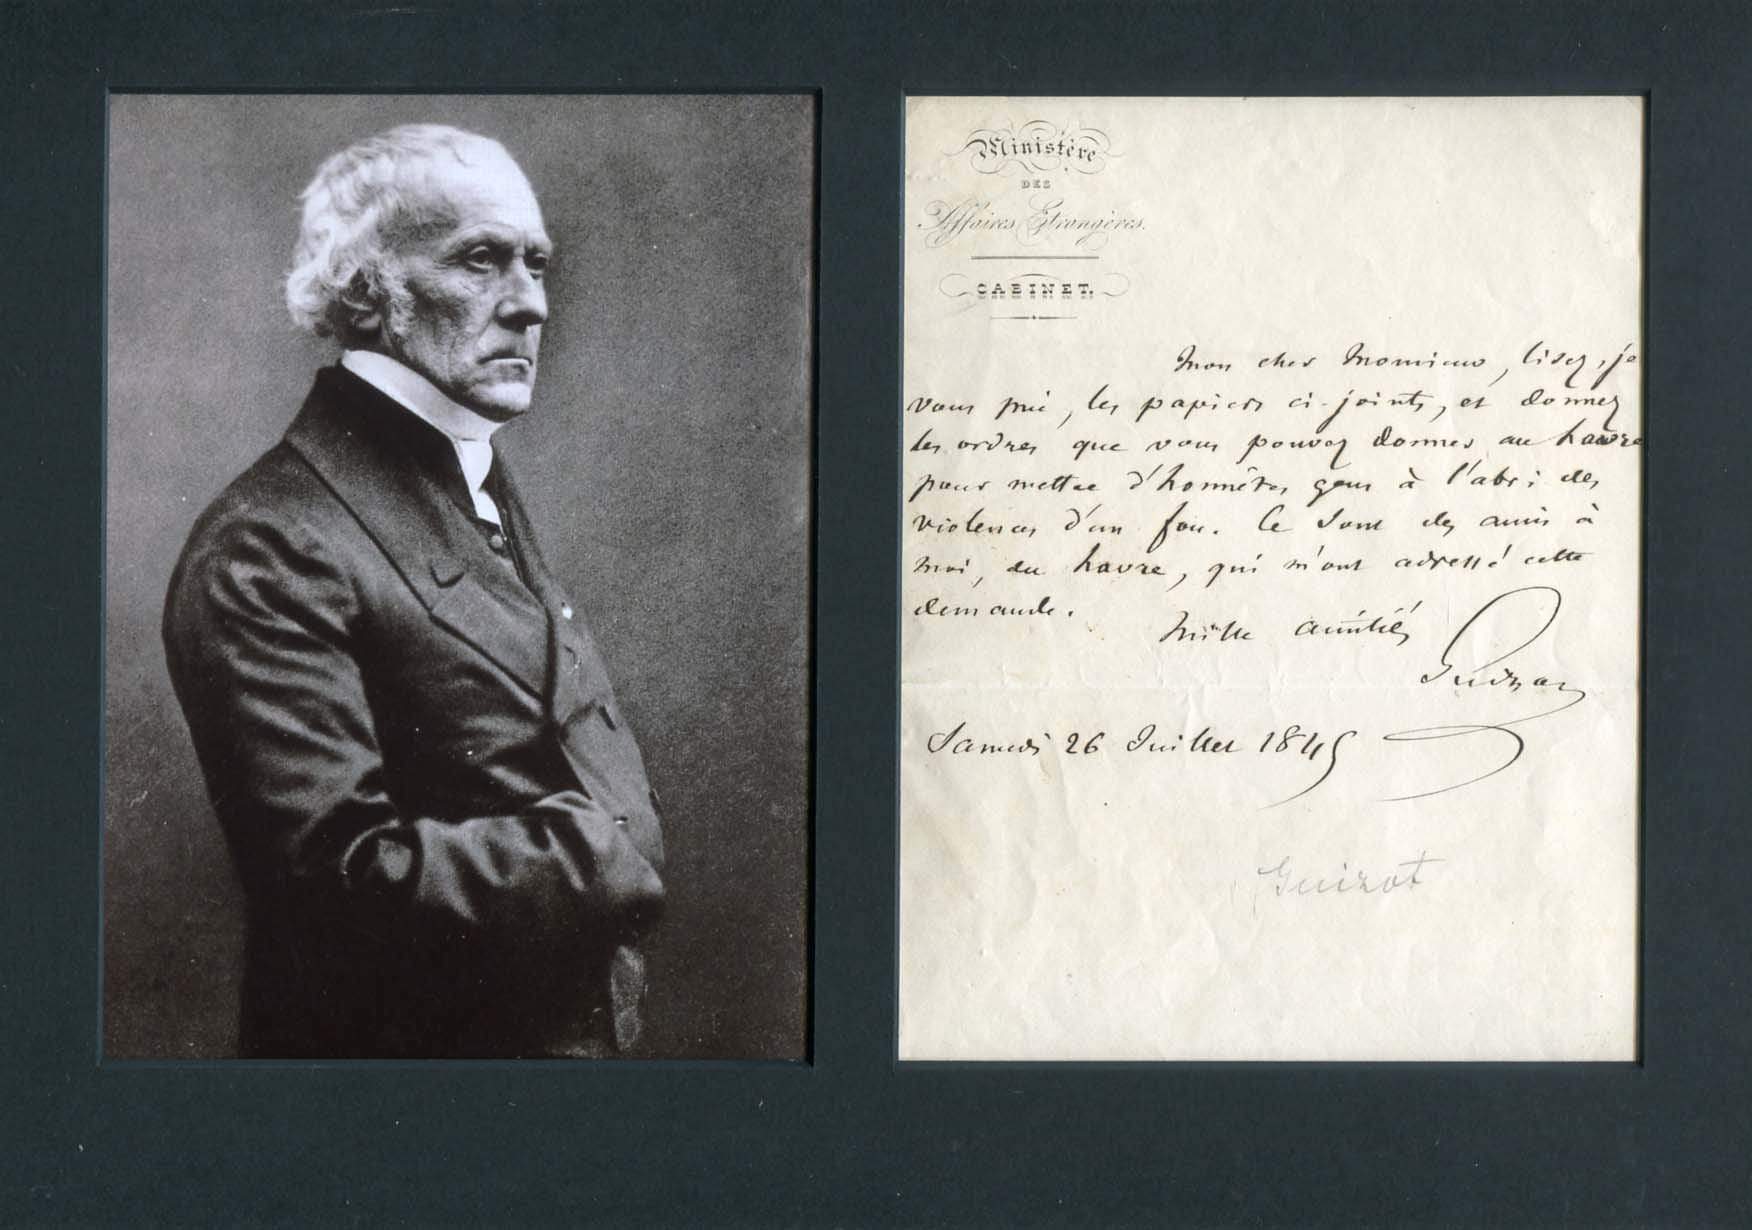 Ministère
DES
Affaires Etrangères.
CABINET.
Mon cher Monsieur, lisez, je
vous prie, les papiers ci-joints, et donnez
les ordres que vous pouvez donner au havre
pour mettre d'honnêtes gens à l'abri des
violences d'un fou. Ce sont des amis à
moi, du havre, qui m'ont adressé cette
demande.
Mille amitiés
Guizot
Samedi 26 Juillet 1845
Guizot